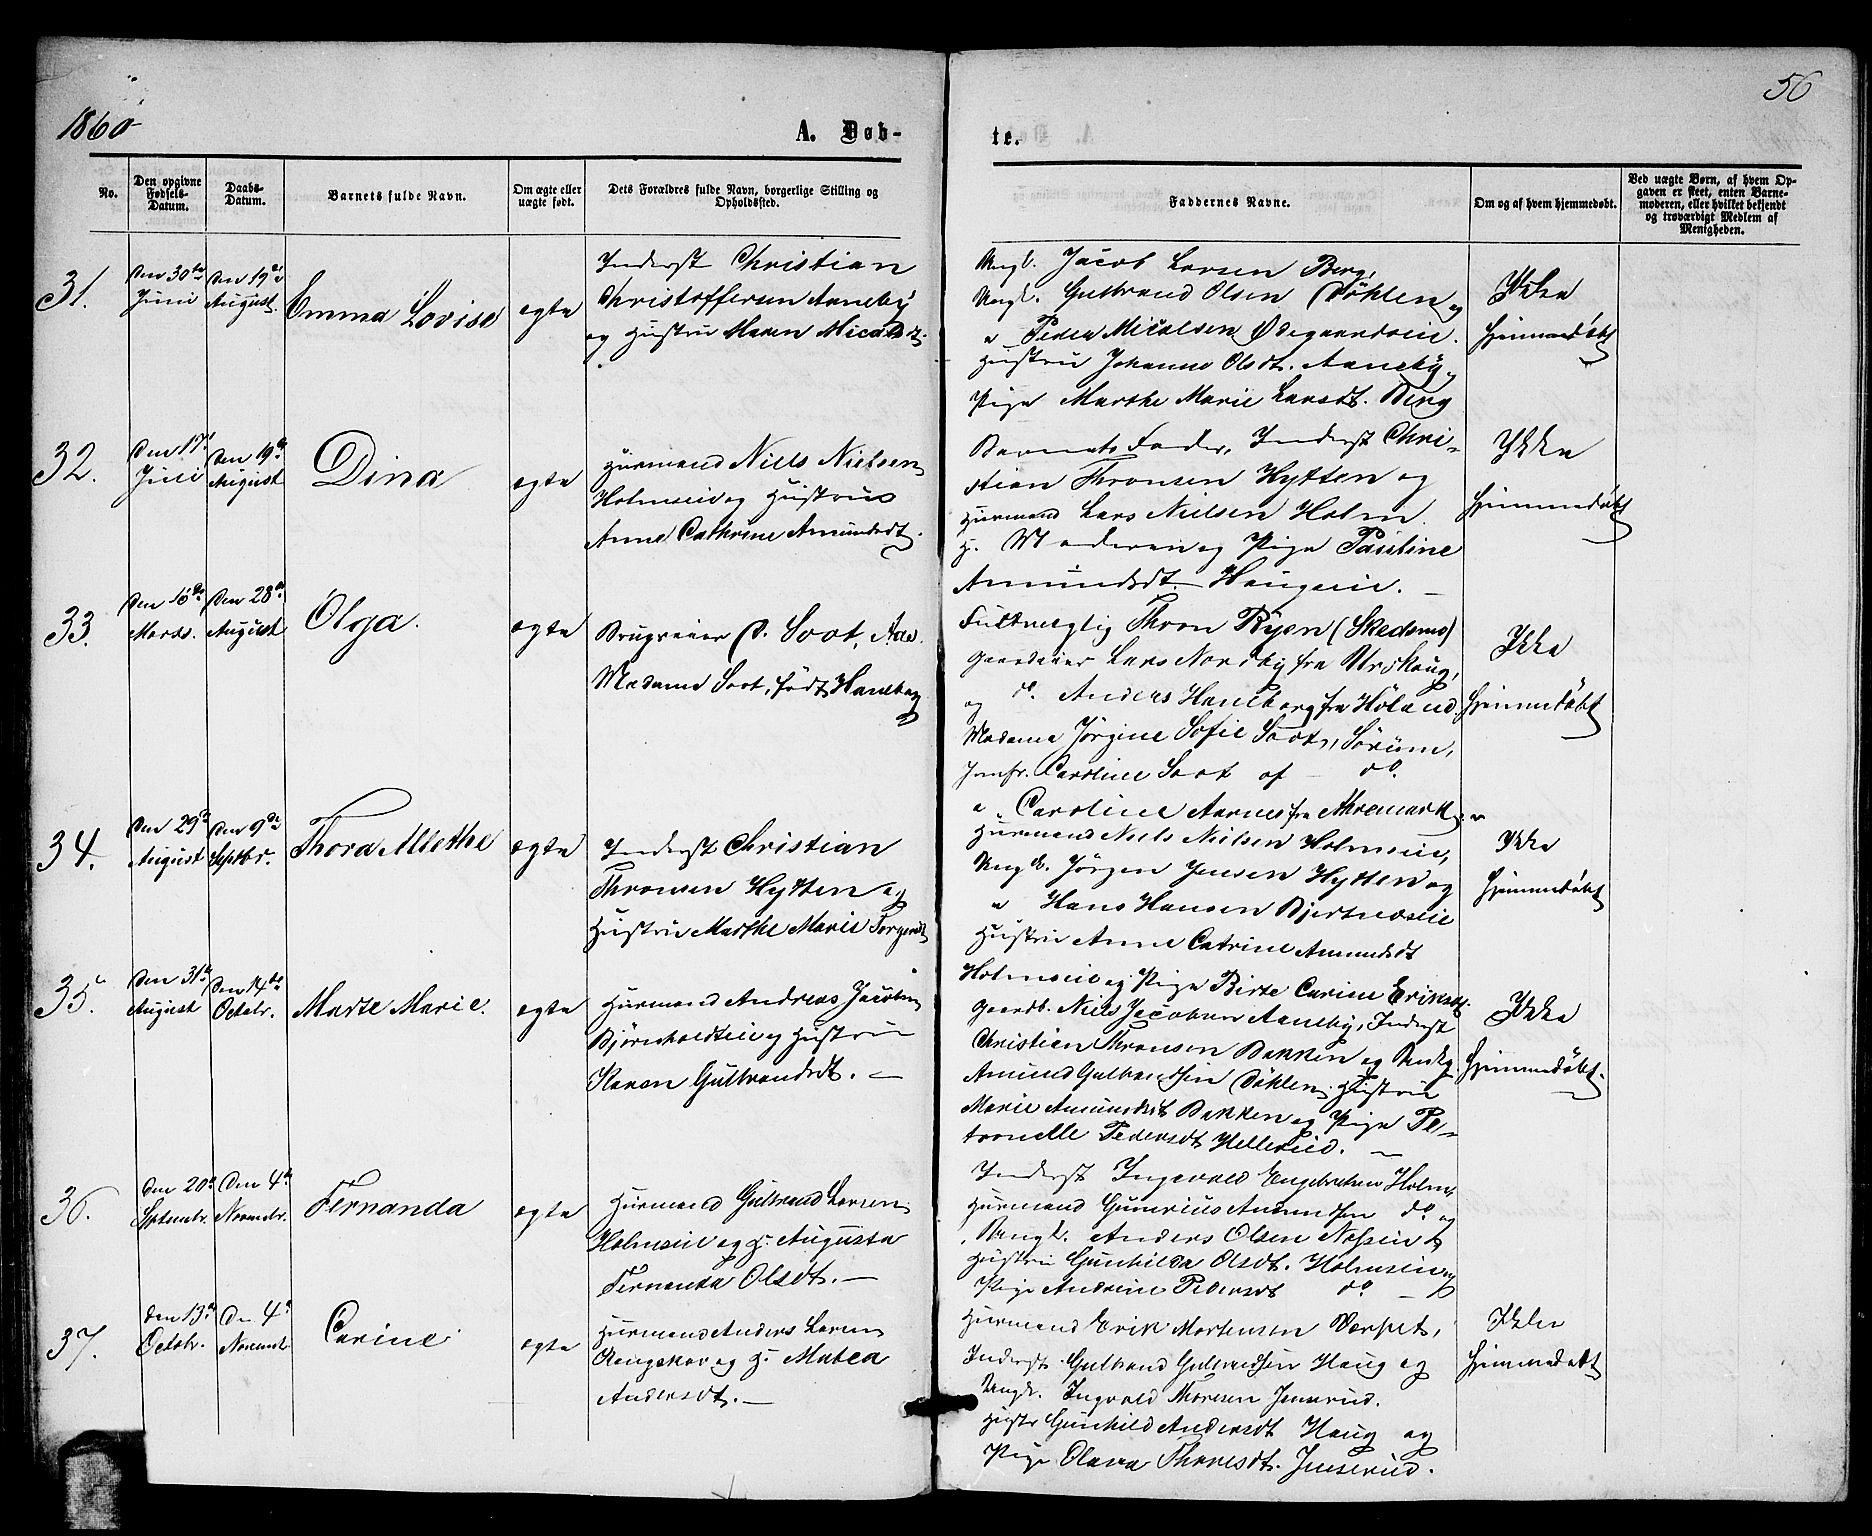 1860
A. Døb-
te.
56
No.
Den opgivne Fødsels-Datum.
Daabs-Datum.
Barnets fulde Navn.
Om ægte eller uægte født.
Dets Forældres fulde Navn, borgerlige Stilling og Opholdssted.
Faddernes Navne.
Om og af hvem hjemmedøbt.
Ved uægte Børn, af hvem Opgaven er skeet, enten Barnemoderen, eller hvilket bekjendt og troværdigt Medlem af Menigheden.
31.
Den 30te Juni
Den 19de August.
Emma Lovise
ægte
Inderst Christian
Christoffersen Aaneby
og Hustru Maren Micalsdt.
Ungk. Jacob Larsen Berg,
Ungk. Gulbrand Olsen Døhlen og
" Peder Micalsen Ødegaardseie.
Hustru Johanne Olsdt. Aaneby,
Pige Marthe Marie Larsdt. Berg
Ikke
hjemmedøbt
32.
Den 17de Juli
Den 19de August
Dina
ægte
Husmand Niels Nielsen
Holmseie og Hustrue
Anne Cathrine Amundsdt.
Barnets Fader, Inderst Chri-
stian Thronsen Hytten og
Husmand Lars Nielsen Holm.
H. Moderen og Pige Pauline
Amundsdt. Haugeeie. –
Ikke
hjemmedøbt
33.
Den 16de Marts.
Den 28de August
Olga.
ægte
Brugseier P. Soot, Aae.
Madame Soot, født Haneborg
Fuldmægtig Thron Ryen (Skedsmo)
Gaardeier Lars Nordby fra Urskoug,
og do. Anders Haneborg fra Høland
Madame Jørgine Sofie Soot, Sørum,
Jomfr. Caroline Soot af – do.
" Caroline Aarnes fra Aremark
Ikke
hjemmedøbt
34.
Den 29de August
Den 9de Septbr.
Thora Mlethe
ægte
Inderst Christian
Thronsen Hytten og
Hustrue Marthe Marie Torgersdt
Husmand Niels Nielsen Holmseie,
Ungk. Jørgen Jensen Hytten og
" Hans Hansen Bjertnæseie
Hustrue Anne Catrine Amundsdt
Holmseie og Pige Birte Carine Eriksdt.
Ikke
hjemmedøbt
35.
Den 31te August
Den 14de Octobr.
Marte Marie.
ægte
Husmand Andreas Jacobsen
Bjørnholdteie og Hustrue
Karen Gulbrandsdt. –
Gaardb. Niels Jacobsen Aaneby, Inderst
Christian Thronsen Bakken og Ungk.
Amund Gulbrandsen Døhlen. Hustrue
Marie Amundsdt Bakken og Pige Pe-
tronelle Pedersdt Hellerud. –
Ikke
hjemmedøbt.
36.
Den 20de Septembr.
Den 4de Novembr.
Fernanda
ægte
Husmand Gulbrand Larsen
Holmseie og H. Augusta
Fernanda Olsdt. –
Inderst Ingevald Engebretsen Holm,
Husmand Gunerius Amundsen do. og
Ungk. Anders Olsen
Hustru Gunhilda Olsdt. Holmseie og
Pige Andrine Pedersdt do. –
37.
Den 13de Octobr.
Den 4de Novembr
Carine
ægte
Husmand Anders Larsen
og H. Matea
Andersdt. –
Husmand Erik Mortensen
Inderst Gulbrand Gulbrandsen Haug og
Ungk. Ingvald Thoresen Jenserud.
Hustr Gunhild Andersdt Haug og
Pige Olava Thoresdt. Jenserud.
Ikke
hjemmedøbt